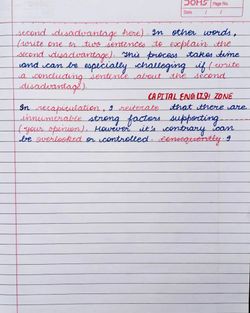 DOMS Page No.
Date / /
second disadvantage here). In other words,
(write one or two sentences to explain the
second disadvantage). This process takes time
and can be especially challeging if (write
a concluding sentence about the second
disadvantage).
CAPITAL ENGLISH ZONE
In recapitulation, I reiterate that there are
innumerable strong factors supporting
(your opinion). However it's contrary can
be overlooked or controlled. consequently I